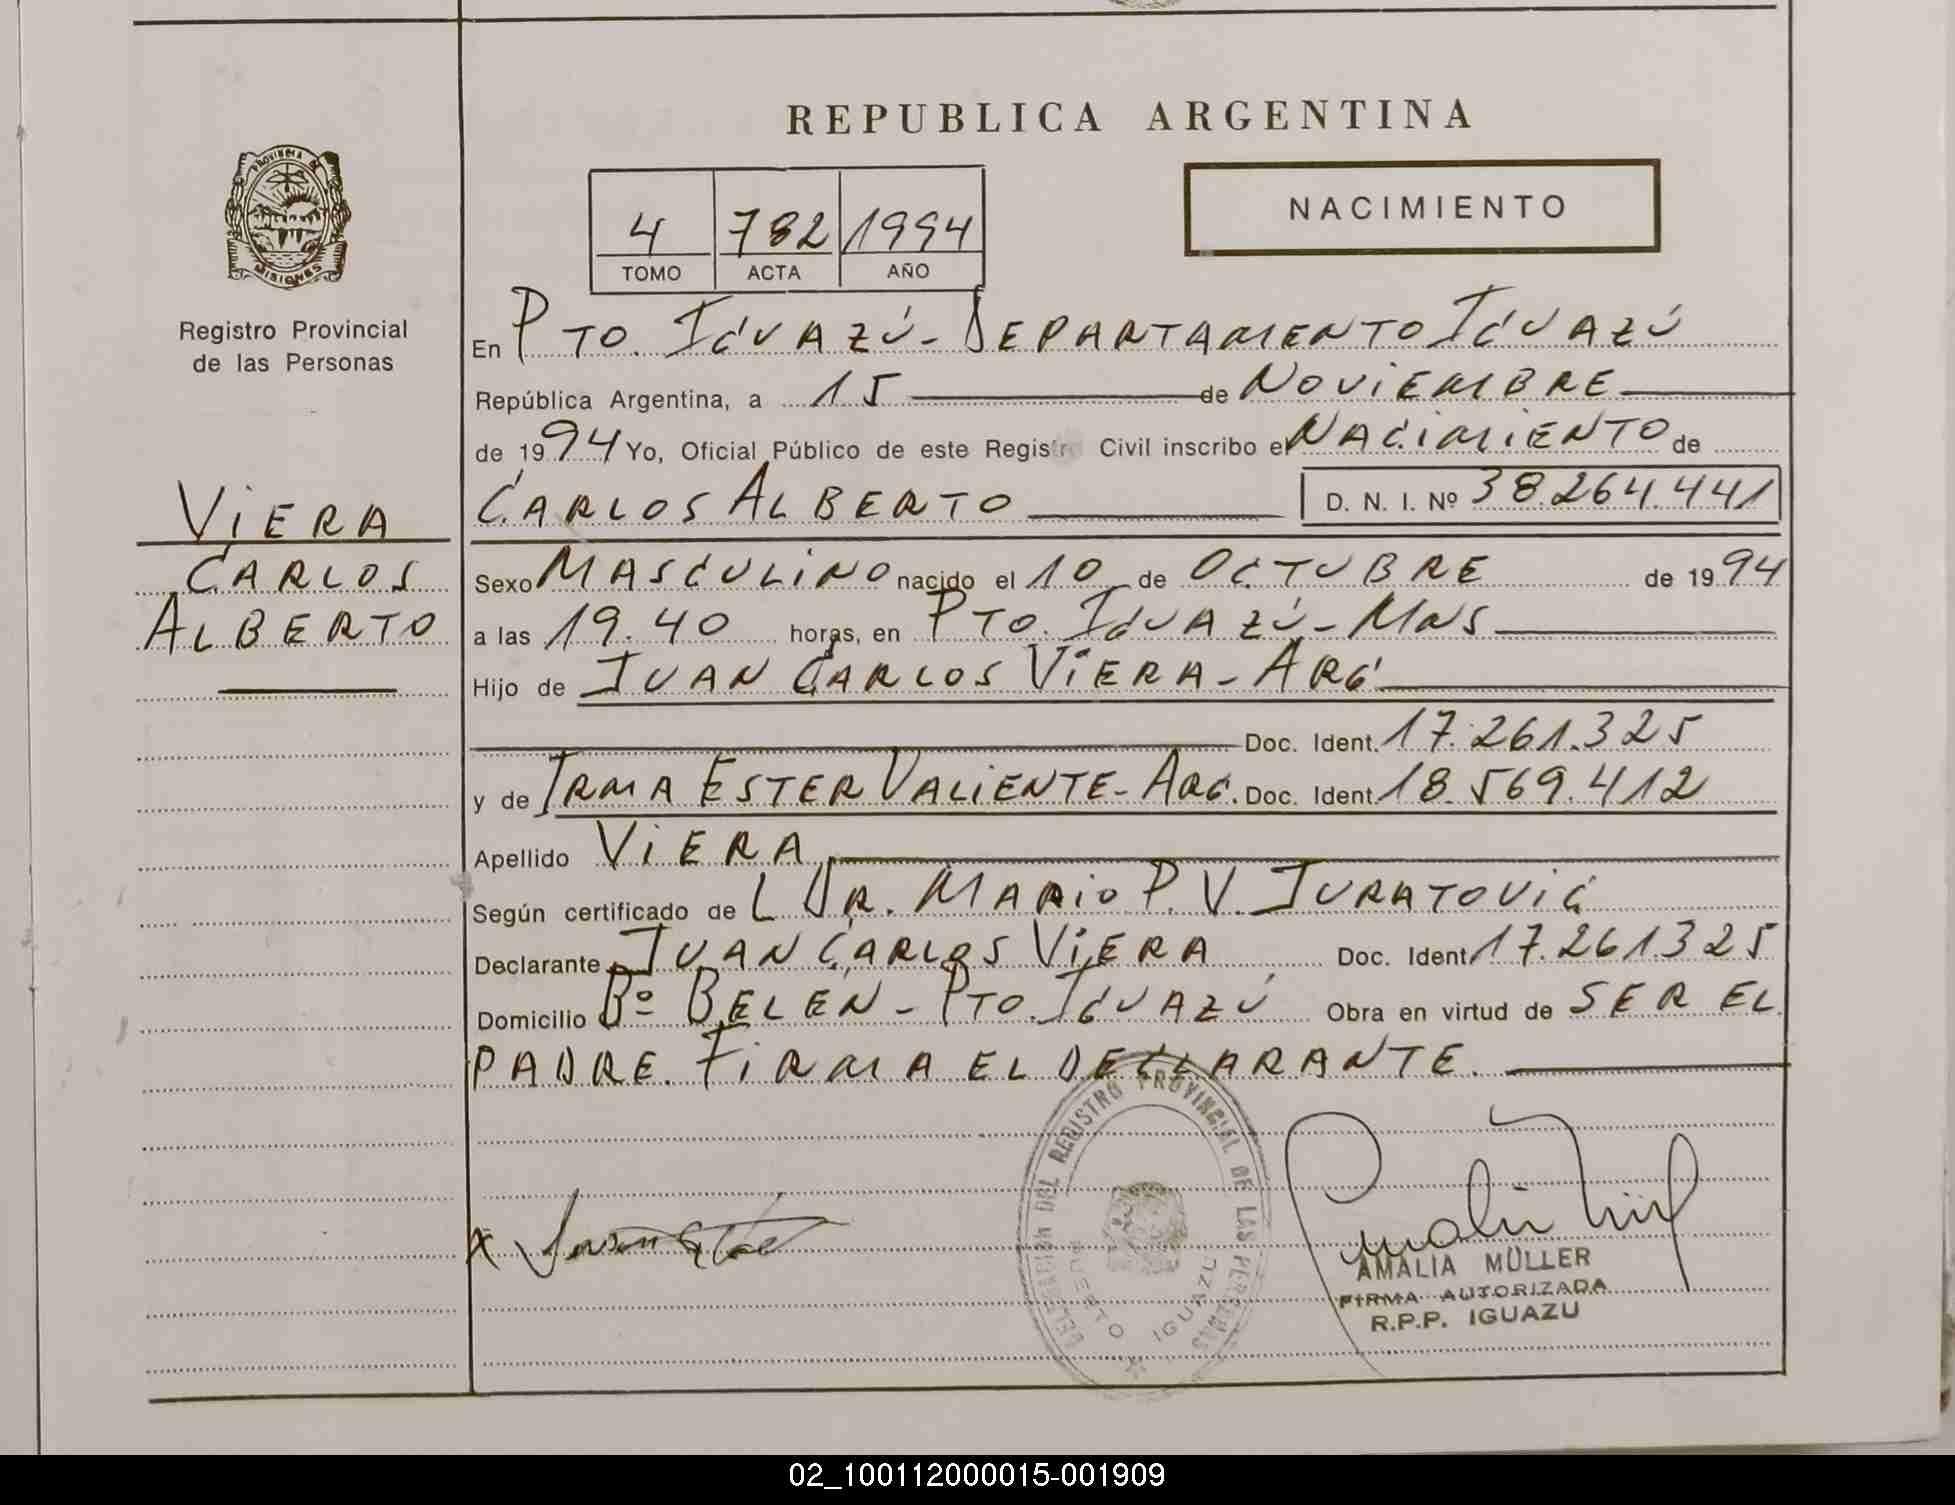 REPUBLICA ARGENTINA
PROVINCIA DE
MISIONES
Registro Provincial
de las Personas
4 782 1994
TOMO ACTA AÑO
NACIMIENTO
En PTO. IGUAZÚ - DEPARTAMENTO IGUAZÚ
República Argentina, a 15 de NOVIEMBRE
de 1994 Yo, Oficial Público de este Registro Civil inscribo el NACIMIENTO de
CARLOS ALBERTO D. N. I. Nº 38.264.441
VIERA
CARLOS
ALBERTO
Sexo MASCULINO nacido el 10 de OCTUBRE de 1994
a las 19.40 horas, en PTO. IGUAZÚ - MNS
Hijo de JUAN CARLOS VIERA - ARG
Doc. Ident. 17.261.325
y de IRMA ESTER VALIENTE - ARG. Doc. Ident. 18.569.412
Apellido VIERA
Según certificado de L DR. MARIO P. V. JURATOVIC
Declarante JUAN CARLOS VIERA Doc. Ident 17.261325
Domicilio Bº BELÉN - PTO. IGUAZÚ Obra en virtud de SER EL
PADRE. FIRMA EL DECLARANTE.
DELEGACION DEL REGISTRO PROVINCIAL DE LAS PERSONAS
PUERTO IGUAZU
x
AMALIA MÜLLER
FIRMA AUTORIZADA
R.P.P. IGUAZU
02_100112000015-001909